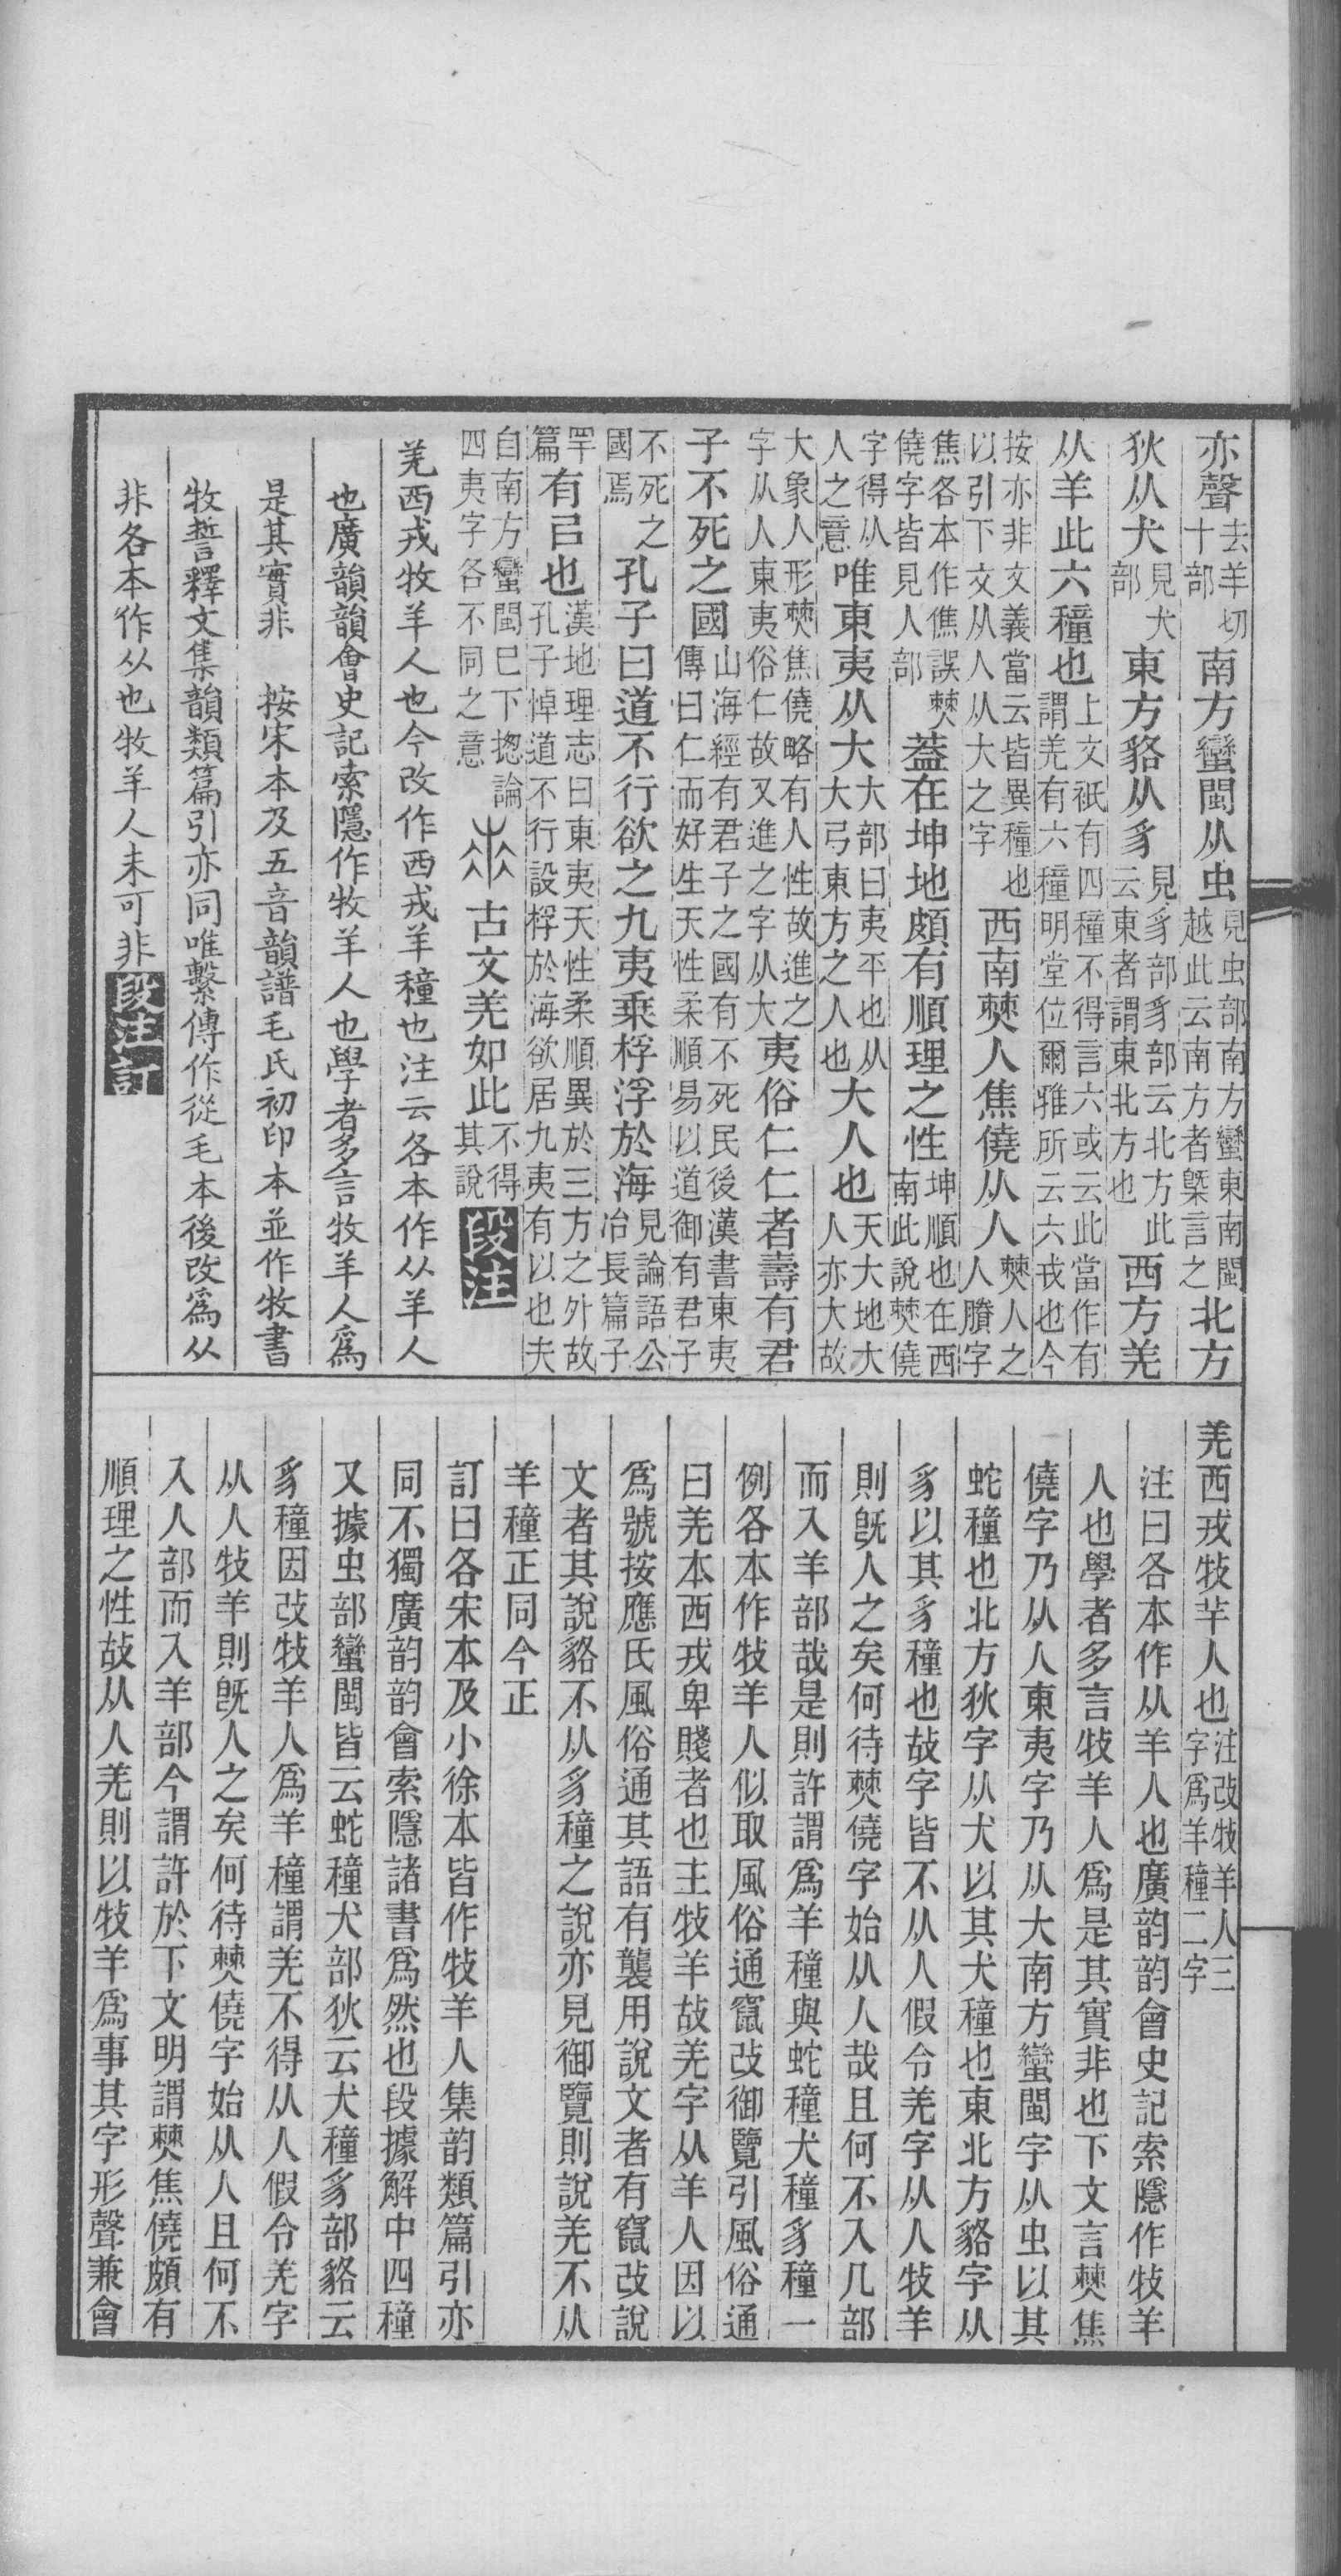 亦聲去羊切十部南方蠻閩从虫見虫部南方蠻東南閩越此云南方者槩言之北方
狄从犬見犬部東方貉从豸見豸部豸部云北方此云東者謂東北方也西方羌
从羊此六種也上文衹有四種不得言六或云此當作有謂羌有六種明堂位爾雅所云六戎也今
按亦非文義當云皆異種也以引下文从人从大之字西南僰人焦僥从人僰人之人賸字
焦各本作僬誤僰僥字皆見人部葢在坤地頗有順理之性坤順也在西南此說僰僥
字得从人之意唯東夷从大大部曰夷平也从大弓東方之人也大人也天大地大人亦大故
大象人形僰焦僥略有人性故進之字从人東夷俗仁故又進之字从大夷俗仁仁者壽有君
子不死之國山海經有君子之國有不死民後漢書東夷傳曰仁而好生天性柔順易以道御有君子
不死之國焉孔子曰道不行欲之九夷乘桴浮於海見論語公冶長篇子
罕篇有㠯也漢地理志曰東夷天性柔順異於三方之外故孔子悼道不行設桴於海欲居九夷有以也夫
自南方蠻閩已下揔論四夷字各不同之意古文羌如此不得其說段注
羌西戎牧羊人也今改作西戎羊種也注云各本作从羊人
也廣韻韻會史記索隱作牧羊人也學者多言牧羊人爲
是其實非　按宋本及五音韻譜毛氏初印本並作牧書
牧誓釋文集韻類篇引亦同唯繫傳作從毛本後改爲从
非各本作从也牧羊人未可非段注訂
羌西戎牧羊人也注改牧羊人三字爲羊種二字
注曰各本作从羊人也廣韵韵會史記索隱作牧羊
人也學者多言牧羊人爲是其實非也下文言僰焦
僥字乃从人東夷字乃从大南方蠻閩字从虫以其
蛇種也北方狄字从犬以其犬種也東北方貉字从
豸以其豸種也故字皆不从人假令羌字从人牧羊
則旣人之矣何待僰僥字始从人哉且何不入儿部
而入羊部哉是則許謂爲羊種與蛇種犬種豸種一
例各本作牧羊人似取風俗通竄改御覽引風俗通
曰羌本西戎卑賤者也主牧羊故羌字从羊人因以
爲號按應氏風俗通其語有襲用說文者有竄改說
文者其說貉不从豸種之說亦見御覽則說羌不从
羊種正同今正
訂曰各宋本及小徐本皆作牧羊人集韵類篇引亦
同不獨廣韵韵會索隱諸書爲然也段據解中四種
又據虫部蠻閩皆云蛇種犬部狄云犬種豸部貉云
豸種因改牧羊人爲羊種謂羌不得从人假令羌字
从人牧羊則旣人之矣何待僰僥字始从人且何不
入人部而入羊部今謂許於下文明謂僰焦僥頗有
順理之性故从人羌則以牧羊爲事其字形聲兼會